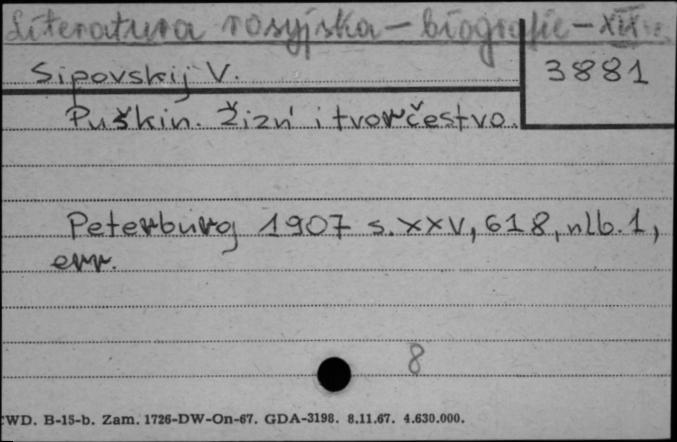 Literatura rosyjska - biografie - XIX w.
Sipovskij V.
3881
Puškin. Žizń i tvorčestvo.
Peterburg 1907 s. XXV, 618, nlb. 1,
err.
8
CWD. B-15-b. Zam. 1726-DW-On-67. GDA-3198. 8.11.67. 4.630.000.